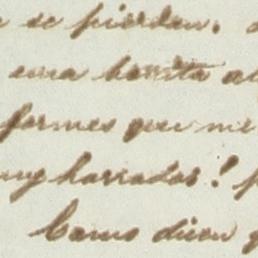 se pierdan.
una bonita
formes que me
muy honrados!
Como dicen q